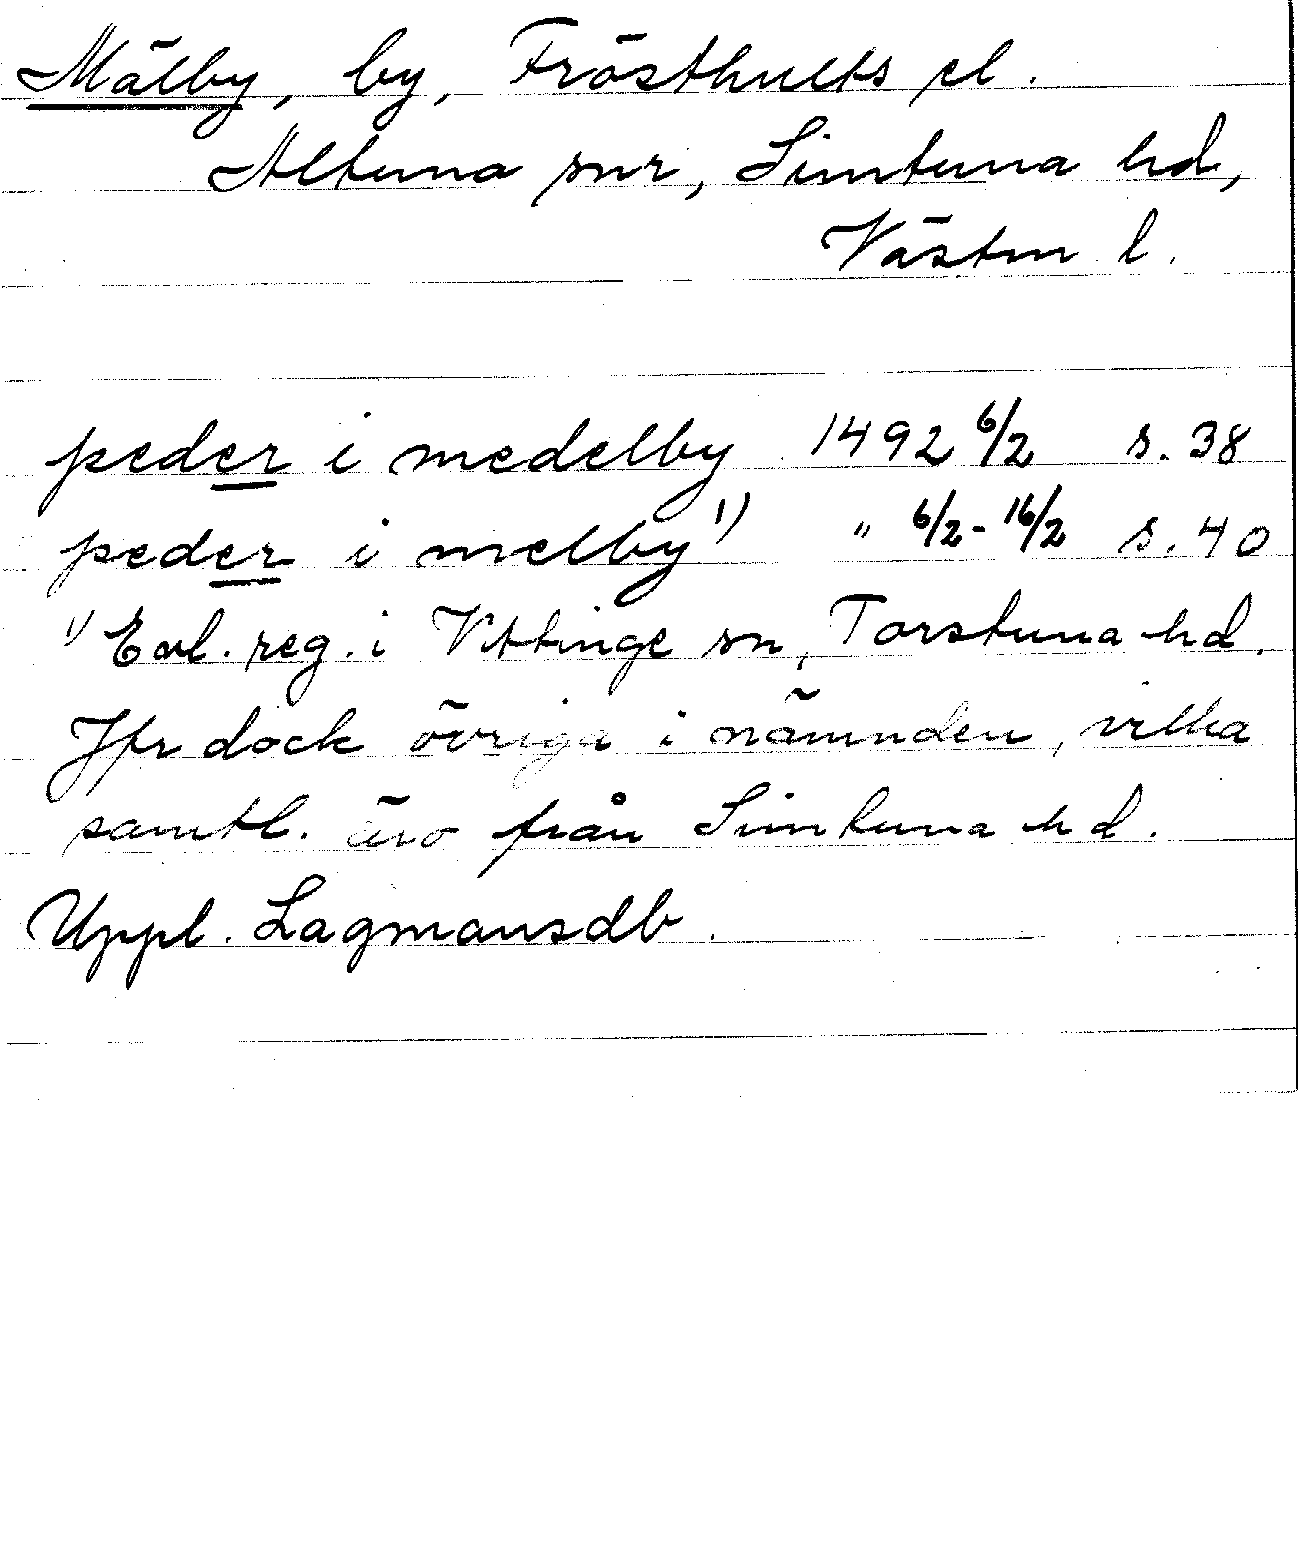 Mälby, by, Frösthults el.
Altuna snr, Simtuna hd,
Västm l.
peder i medelby 1492 6/2 s. 38
peder i melby 1) " 6/2 - 16/2 s. 40
1) Enl. reg. i Vittinge sn, Torstuna hd.
Jfr dock övriga i nämnden, vilka
samtl. äro från Simtuna hd.
Uppl. Lagmansdb.